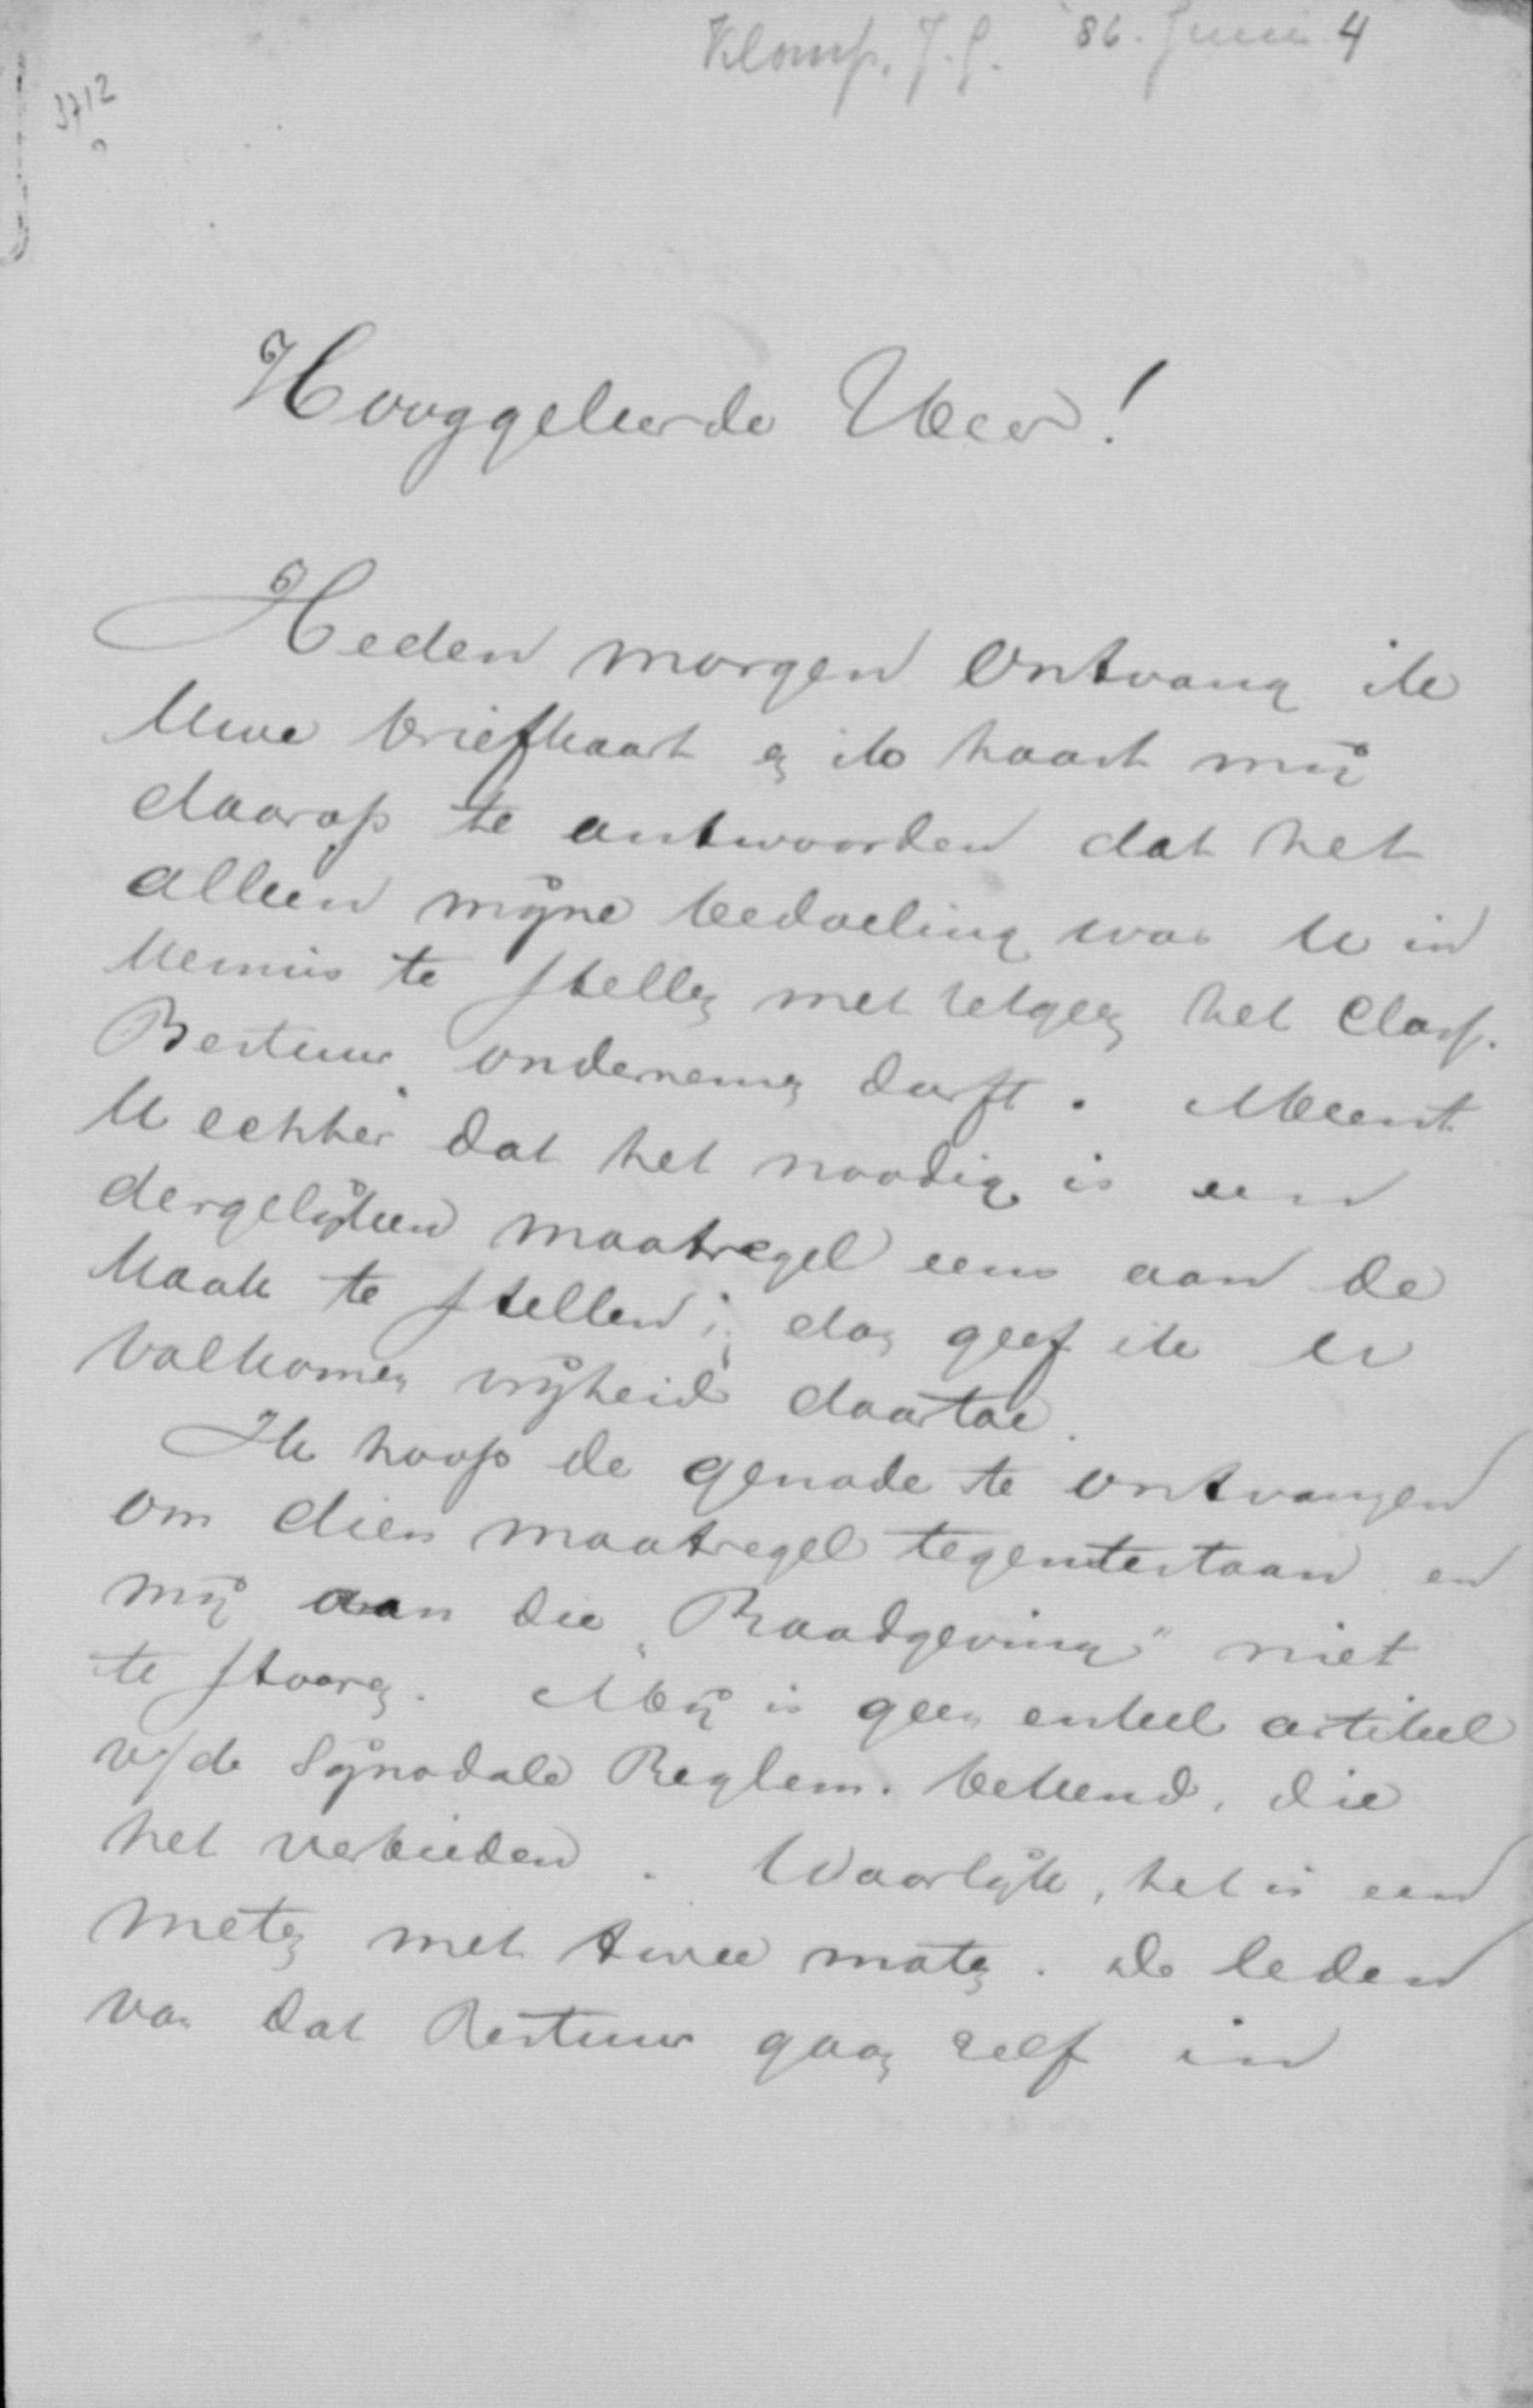 Klomp, J. G. '86. Juni 4
3712
Hooggeleerde Heer!
Heden morgen ontvang ik
Uwe briefkaart en ik haast mij
daarop te antwoorden dat het
alleen mijne bedoeling was U in
kennis te stellen met hetgeen het Class.
Bestuur ondernemen durft. Meent
U echter dat het noodig is een
dergelijken maatregel eens aan de
kaak te stellen; dan geef ik U
volkomen vrijheid daartoe.
Ik hoop de genade te ontvangen
om dien maatregel tegentestaan en
mij aan die "Raadgeving" niet
te storen. Mij is geen enkel artikel
v/de Synodale Reglem. bekend, die
het verbieden. Waarlijk, het is een
meten met twee maten. De leden
van dat Bestuur gaan zelf in